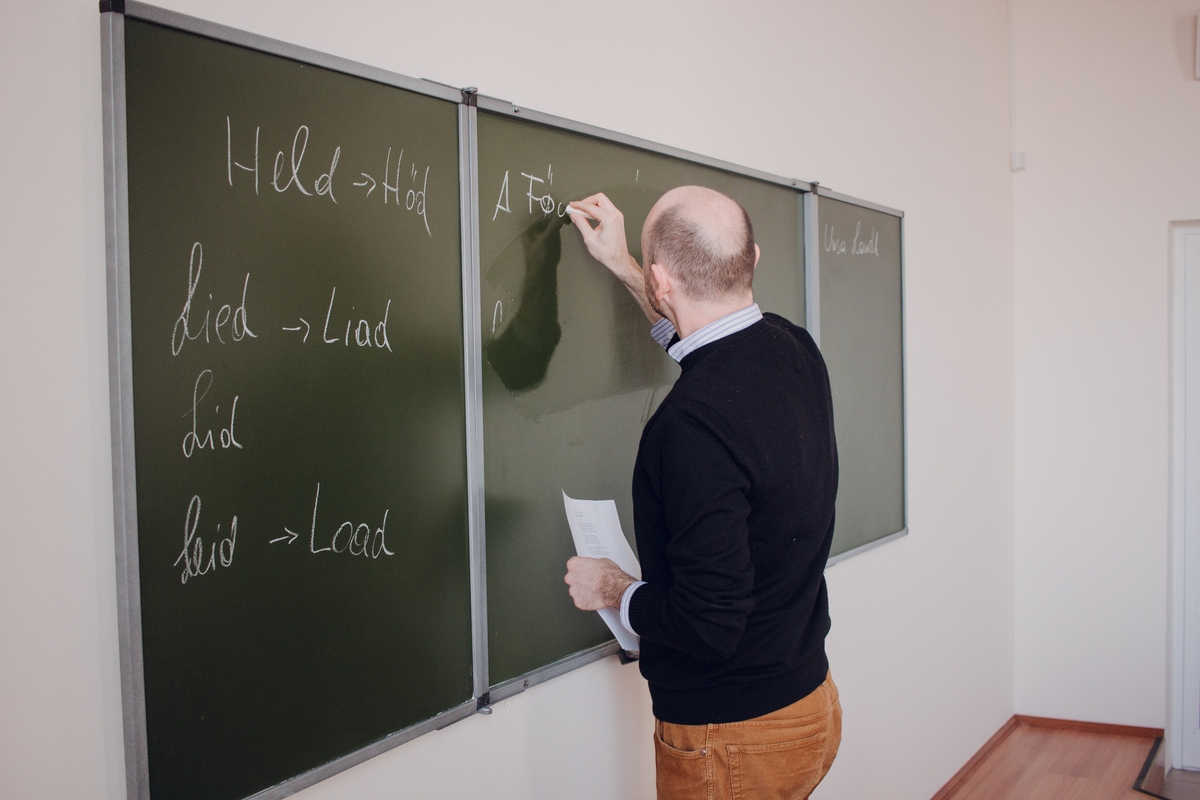 Held → Höd
Lied → Liad
Lid
Leid → Load
A Fö
Unsa Landl